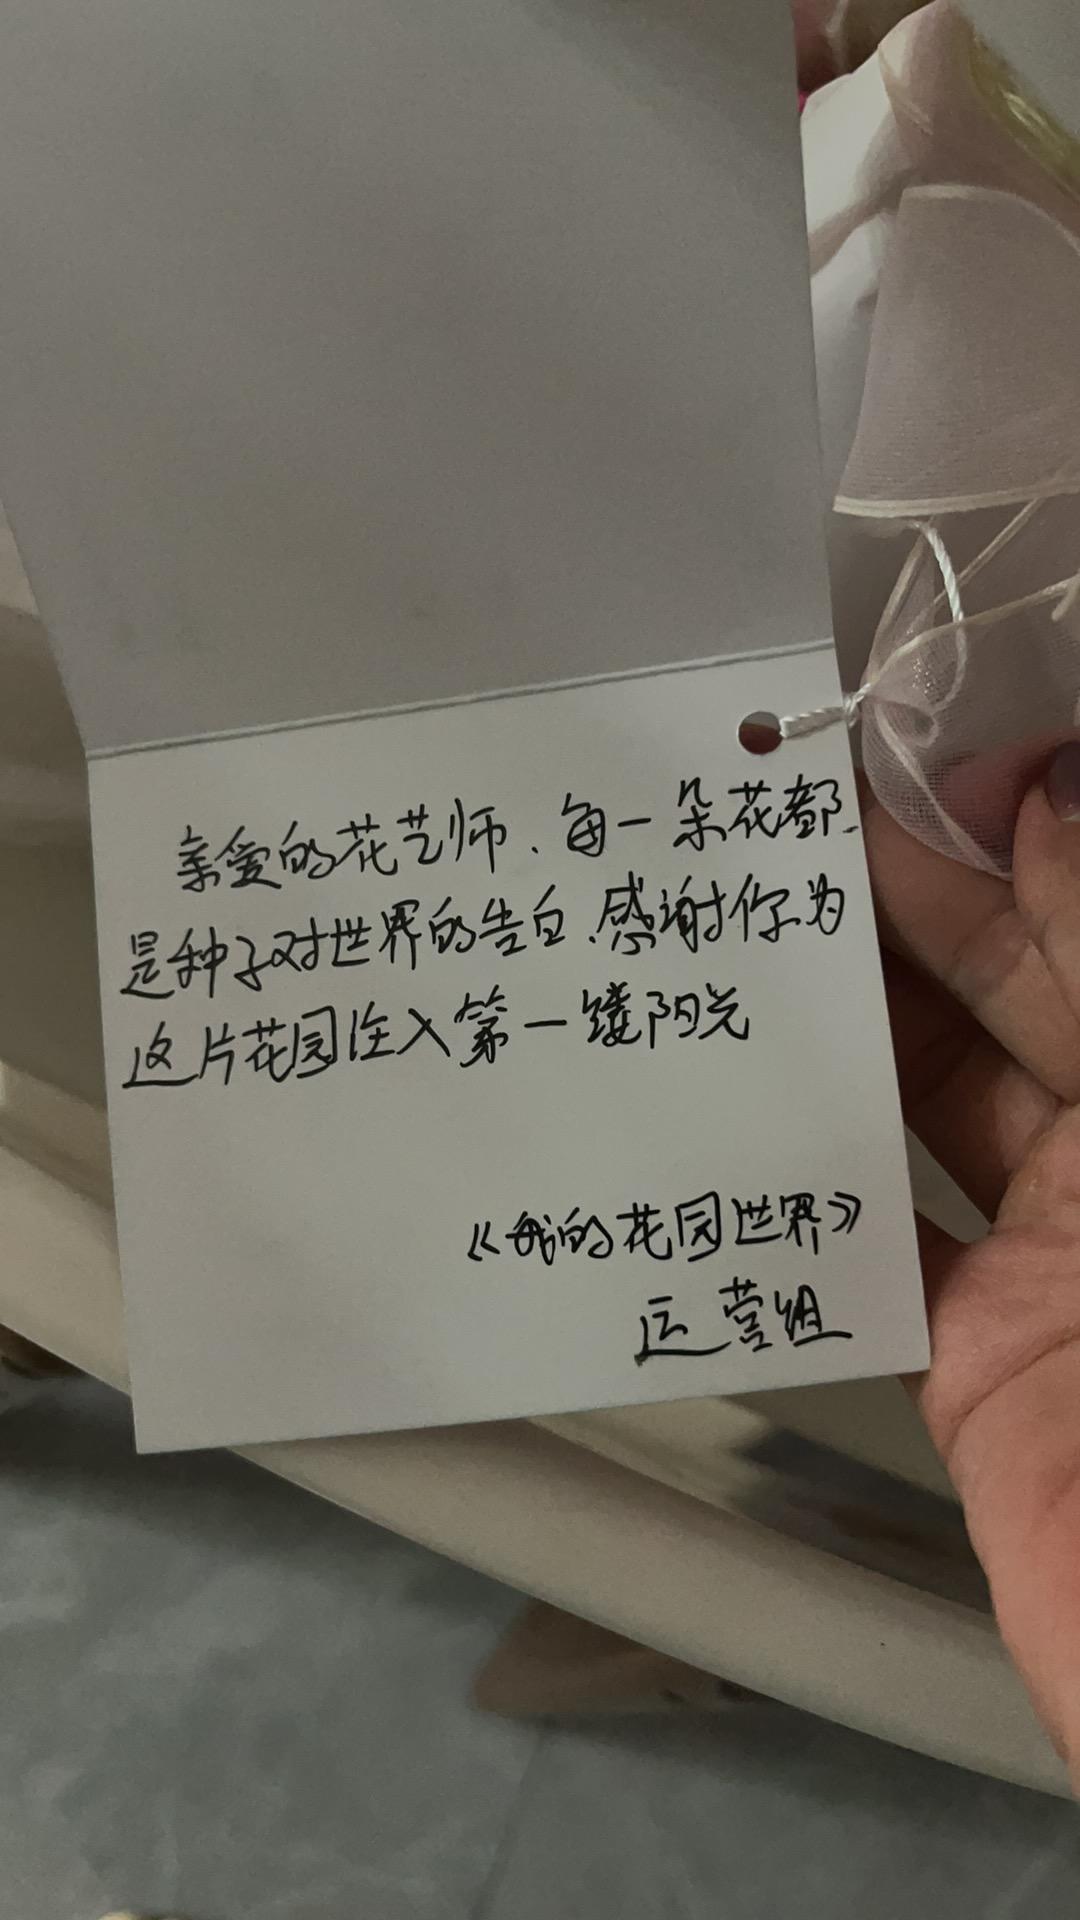 亲爱的花艺师、每一朵花都
是种子对世界的告白.感谢你为
这片花园注入第一缕阳光
《我的花园世界》
运营组